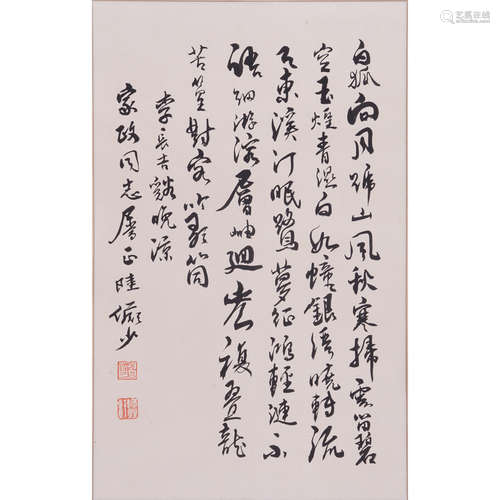 白狐向月號山風秋寒掃雲留碧
空玉煙青濕白如幢銀灣曉轉流
天東溪汀眠鷺夢征鴻輕漣不
語細游溶層岫迴岑複疊龍
苦篁對客吟歌筒
李長吉谿晚涼
家政同志屬正陸儼少
艺狐在线